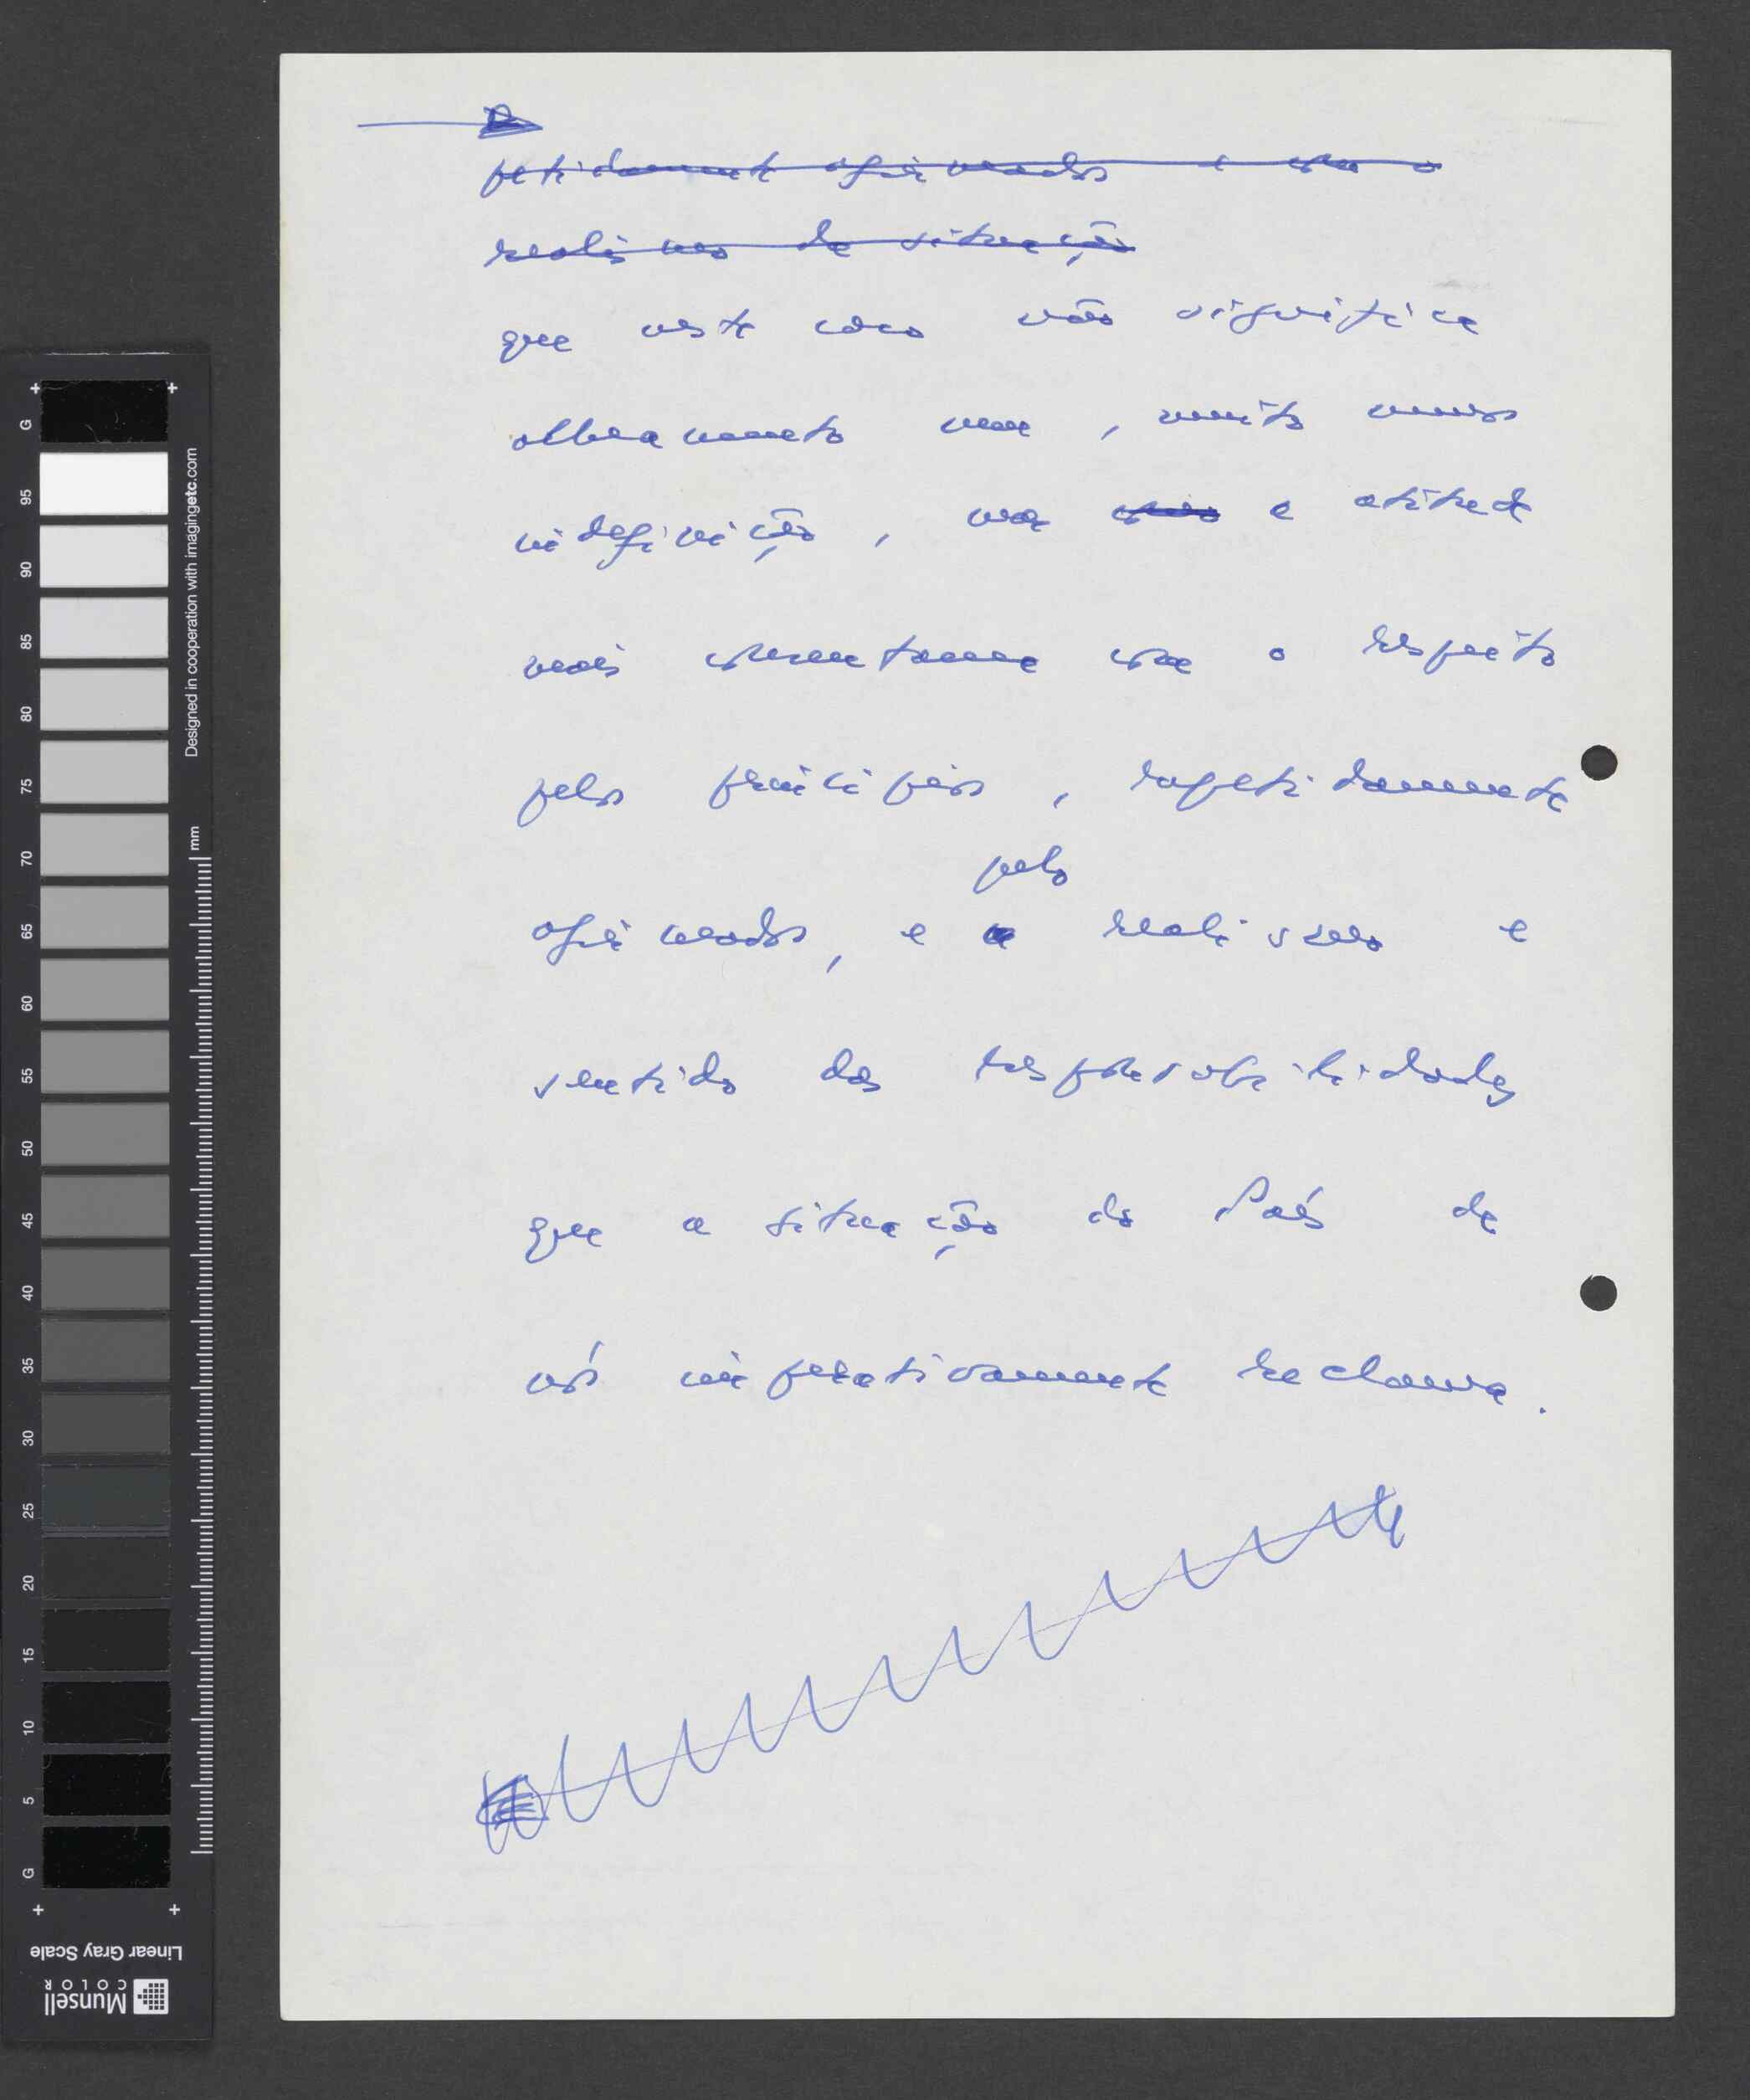 petidamente afirmados e com o
realismo da situação
que neste caso não significa
alheamento nem, muito menos
indefinição, mas a atitude
mais consentânea com o respeito
pelos princípios, repetidamente
pelo
afirmados, e realismo e
sentido das responsabilidades
que a situação do País de
nós imperativamente reclama.
G 95 90 85 80 75 70 65 60 55 50 45 40 35 30 25 20 15 10 5 G
Designed in cooperation with imagingetc.com
mm
Linear Gray Scale
Munsell
COLOR